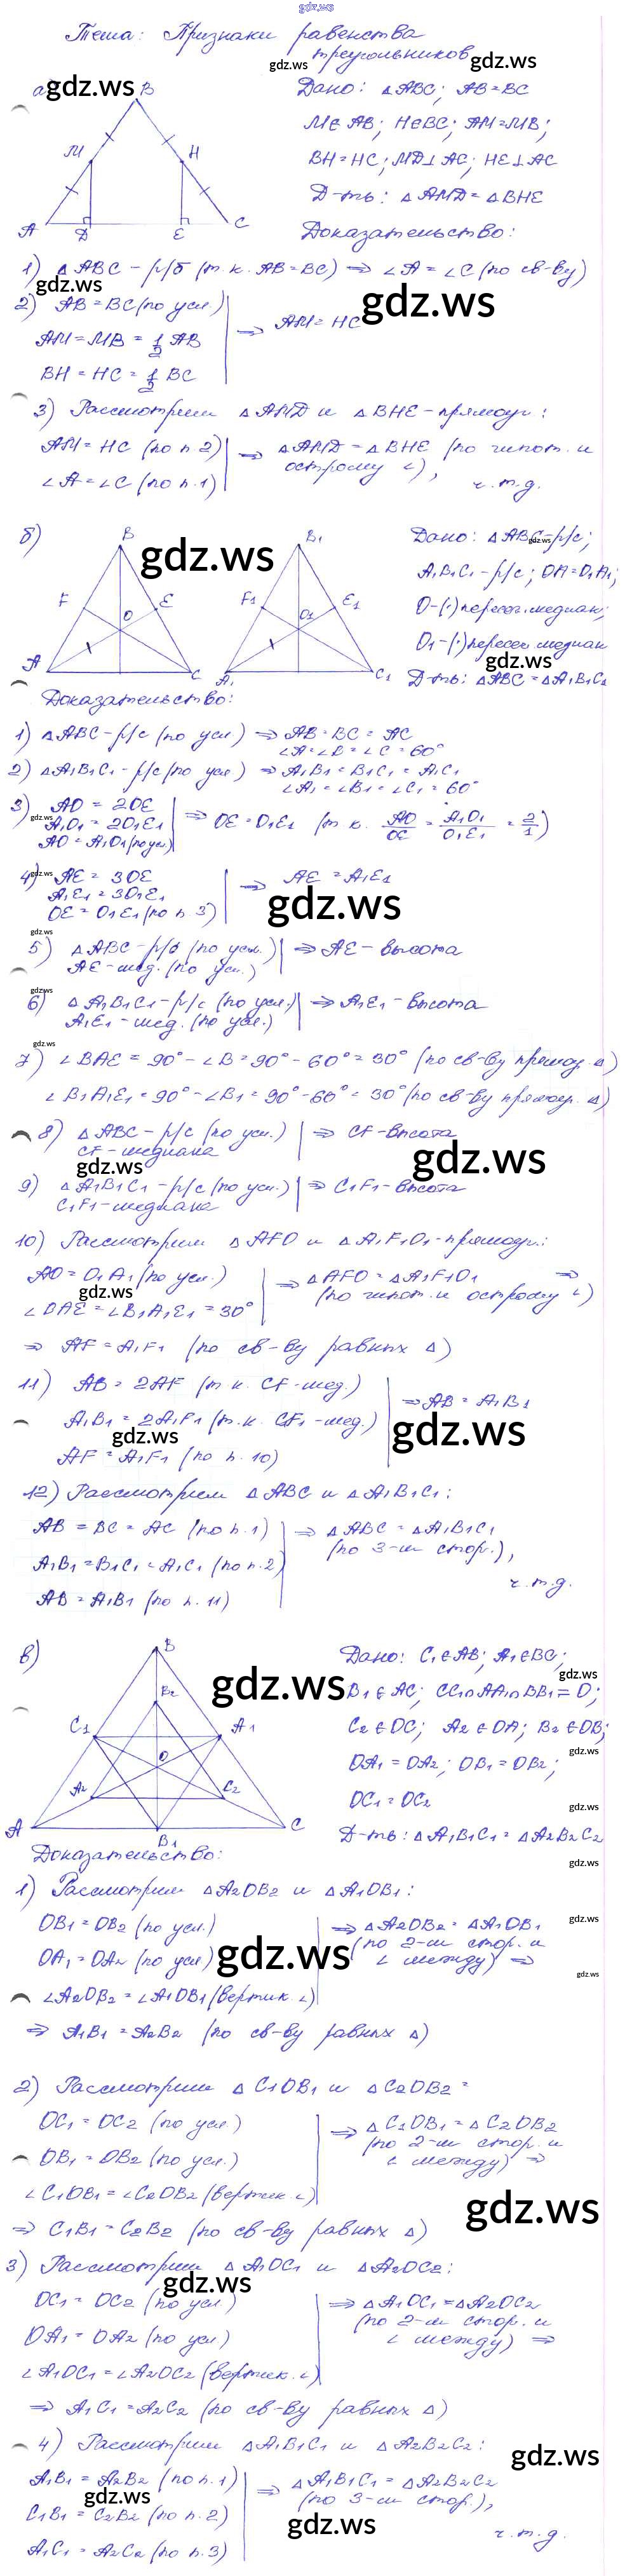 gdz.ws
Тема: Признаки равенства
треугольников
а)
B
M
H
A
D
E
C
Дано: △ABC; AB=BC
M∈AB; H∈BC; AM=MB;
BH=HC; MD⊥AC; HE⊥AC
Д-ть: △AMD=△BHE
Доказательство:
1) △ABC - р/б (т.к. AB=BC) ⇒ ∠A=∠C (по св-ву)
2) AB=BC (по усл.)
AM=MB=1/2 AB
BH=HC=1/2 BC
⇒ AM=HC
3) Рассмотрим △AMD и △BHE - прямоуг:
AM=HC (по п.2)
∠A=∠C (по п.1)
⇒ △AMD=△BHE (по гипот. и
острому ∠),
ч.т.д.
б)
B
F
E
O
A
C
B1
F1
E1
O1
A1
C1
Дано: △ABC-р/с;
A1B1C1-р/с; OA=O1A1;
O-(·)пересеч.медиан;
O1-(·)пересеч.медиан
Д-ть: △ABC=△A1B1C1
Доказательство:
1) △ABC-р/с (по усл) ⇒ AB=BC=AC
∠A=∠B=∠C=60°
2) △A1B1C1-р/с (по усл) ⇒ A1B1=B1C1=A1C1
∠A1=∠B1=∠C1=60°
3) AO=2OE
A1O1=2O1E1
AO=A1O1 (по усл.)
⇒ OE=O1E1 (т.к. AO/OE=A1O1/O1E1=2/1)
4) AE=3OE
A1E1=3O1E1
OE=O1E1 (по п.3)
⇒ AE=A1E1
5) △ABC-р/б (по усл.)
AE-мед. (по усл.)
⇒ AE-высота
6) △A1B1C1-р/с (по усл.)
A1E1-мед. (по усл.)
⇒ A1E1-высота
7) ∠BAE=90°-∠B=90°-60°=30° (по св-ву прямоуг. △)
∠B1A1E1=90°-∠B1=90°-60°=30° (по св-ву прямоуг. △)
8) △ABC-р/с (по усл.)
CF-медиана
⇒ CF-высота
9) △A1B1C1-р/с (по усл.)
C1F1-медиана
⇒ C1F1-высота
10) Рассмотрим △AFO и △A1F1O1-прямоуг.:
AO=O1A1 (по усл.)
∠OAE=∠B1A1E1=30°
⇒ △AFO=△A1F1O1 ⇒
(по гипот. и острому ∠)
⇒ AF=A1F1 (по св-ву равных △)
11) AB=2AF (т.к. CF-мед.)
A1B1=2A1F1 (т.к. CF1-мед.)
AF=A1F1 (по п.10)
⇒ AB=A1B1
12) Рассмотрим △ABC и △A1B1C1:
AB=BC=AC (по п.1)
A1B1=B1C1=A1C1 (по п.2)
AB=A1B1 (по п.11)
⇒ △ABC=△A1B1C1
(по 3-м стор.),
ч.т.д.
в)
B
B2
C1
A1
O
A2
C2
A
B1
C
Дано: C1∈AB; A1∈BC;
B1∈AC; CC1∩AA1∩BB1=O;
C2∈OC; A2∈OA; B2∈OB;
OA1=OA2; OB1=OB2;
OC1=OC2
Д-ть: △A1B1C1=△A2B2C2
Доказательство:
1) Рассмотрим △A2OB2 и △A1OB1:
OB1=OB2 (по усл.)
OA1=OA2 (по усл)
∠A2OB2=∠A1OB1 (вертик.∠)
⇒ △A2OB2=△A1OB1
(по 2-м стор. и
∠ между) ⇒
⇒ A1B1=A2B2 (по св-ву равных △)
2) Рассмотрим △C1OB1 и △C2OB2:
OC1=OC2 (по усл.)
OB1=OB2 (по усл.)
∠C1OB1=∠C2OB2 (вертик.∠)
⇒ △C1OB1=△C2OB2
(по 2-м стор. и
∠ между) ⇒
⇒ C1B1=C2B2 (по св-ву равных △)
3) Рассмотрим △A1OC1 и △A2OC2:
OC1=OC2 (по усл)
OA1=OA2 (по усл)
∠A1OC1=∠A2OC2 (вертик.∠)
⇒ △A1OC1=△A2OC2
(по 2-м стор. и
∠ между) ⇒
⇒ A1C1=A2C2 (по св-ву равных △)
4) Рассмотрим △A1B1C1 и △A2B2C2:
A1B1=A2B2 (по п.1)
C1B1=C2B2 (по п.2)
A1C1=A2C2 (по п.3)
⇒ △A1B1C1=△A2B2C2
(по 3-м стор.),
ч.т.д.